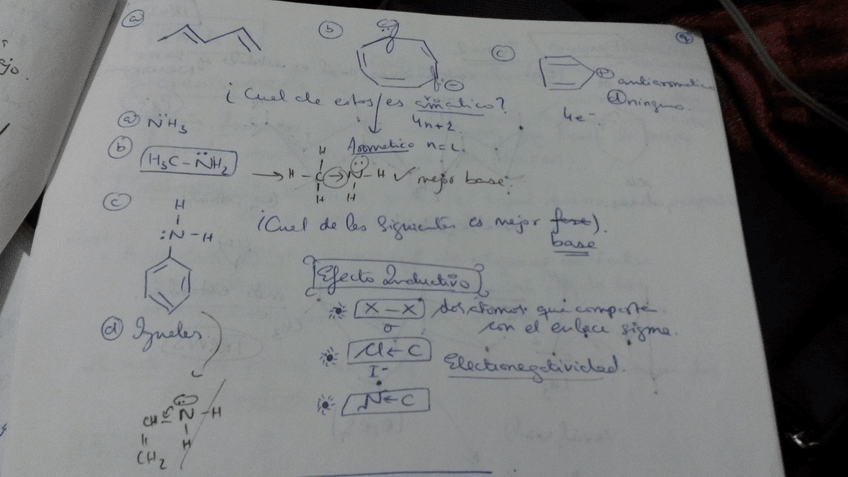 ajo.
a)
b)
c)
⊕ antiaromatico
d) ninguno.
4e⁻.
¿Cuel de estos es aromatico?
4n+2
Aromatico n=2.
a) NH3
b) H3C-NH2 → H-C→N-H ✓ mejor base.
c)
H
:N-H
¿Cuel de los siguientes es mejor
base
Efecto Inductivo
X-X dos atomos que comparten
o con el enlace sigma.
Cl←C Electronegatividad.
I⁻
N←C
d) Iguales
N-H
H
CH
CH2